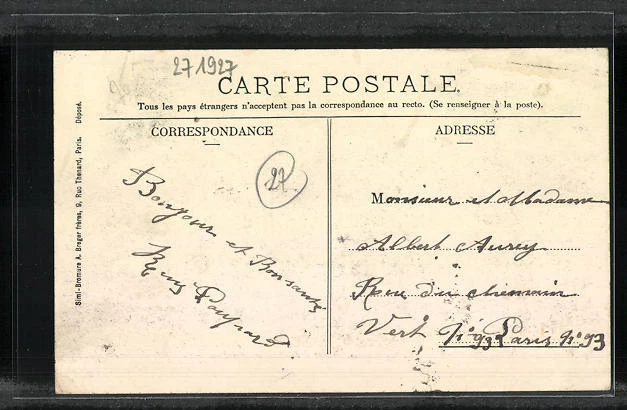 27 1927
CARTE POSTALE.
Tous les pays étrangers n'acceptent pas la correspondance au recto. (Se renseigner à la poste).
CORRESPONDANCE
27
Bonjour et Bonsanté
ADRESSE
Monsieur et Madame
Albert Aurey
Rue du chemain
Vert Nº 93 Paris Nº 93
Simi-Bromure A. Breger frères, 9, Rue Thénard, Paris. Déposé.